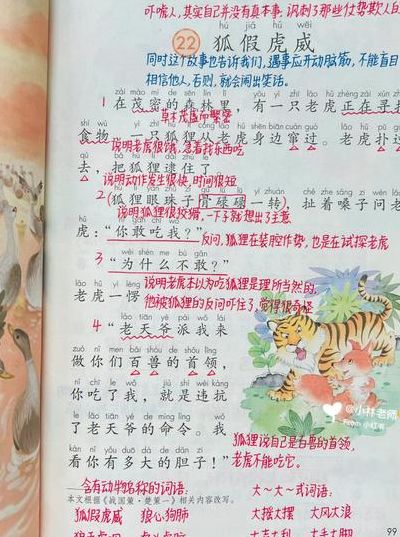 吓唬人,其实自己并没有真本事,讽刺了那些仗势欺人
hú jiǎ hǔ wēi
22 狐假虎威
同时这个故事也告诉我们,遇事应开动脑筋,不能盲目
相信他人,否则,就会闹出笑话。
1 在茂密的森林里,有一只老虎正在寻找
草木茂盛而繁密
食物。一只狐狸从老虎身边窜过。老虎扑过
说明老虎很饿,急着找东西吃
去,把狐狸逮住了。
说明动作发生很快,时间很短
2 狐狸眼珠子骨碌碌一转,扯着嗓子问老
说明狐狸很狡猾,一下子就想出了主意
虎:“你敢吃我?”反问,狐狸在装腔作势,也是在试探老虎
wèi shén me bù gǎn
3 “为什么不敢?”
说明老虎本以为吃狐狸是理所当然的,
老虎一愣
他被狐狸的反问吓住了,觉得很奇怪
lǎo tiān yé pài wǒ lái
4 “老天爷派我来
zuò nǐ men bǎi shòu de shǒu lǐng
做你们百兽的首领,
nǐ chī le wǒ jiù shì wéi kàng
你吃了我,就是违抗
le lǎo tiān yé de mìng lìng wǒ
了老天爷的命令。我
狐狸说自己是百兽的首领,
kàn nǐ yǒu duō dà de dǎn zi
看你有多大的胆子!”老虎不能吃它。
含有动物名称的词语: 大~大~式词语:
本文根据《战国策·楚策一》相关内容改写。
狐假虎威 狼心狗肺 大摇大摆 大风大浪
大吉大利 大手大脚
99
@小林老师
From 小红书